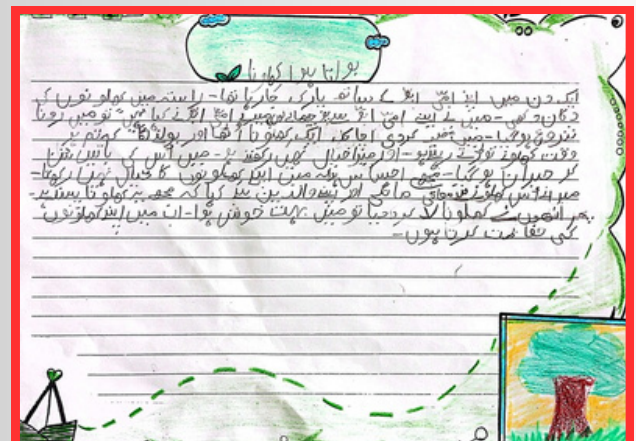 بولتا ہوا کھلونا
ایک دن میں اپنے امّی ابّو کے ساتھ پارک جا رہا تھا۔ راستہ میں کھلونوں کی
دکان دیکھی۔ میں نے اپنے امّی ابّو سے میرے امّی ابّو نے کہا نہیں تو میں رونا
شروع ہوگیا۔ کردی اچانک ایک کھلونا اٹھا اور بولنے لگا کہ تم ہر
وقت کھلونے توڑتے رہتے ہو۔ اور میرا خیال نہیں رکھتے ہو۔ میں اُس کی باتیں سُن
کر حیران ہوگیا۔ مجھے احساس ہوا کہ میں اپنے کھلونوں کا خیال نہیں رکھتا۔
میں نے اُس کھلونے سے معافی مانگی اور اپنے والدین سے کہا کہ مجھے یہ کھلونا پسند ہے۔
پھر انھوں نے کھلونا لا کر دیا تو میں بہت خوش ہوا۔ اب میں اپنے کھلونوں
کی حفاظت کرتا ہوں۔